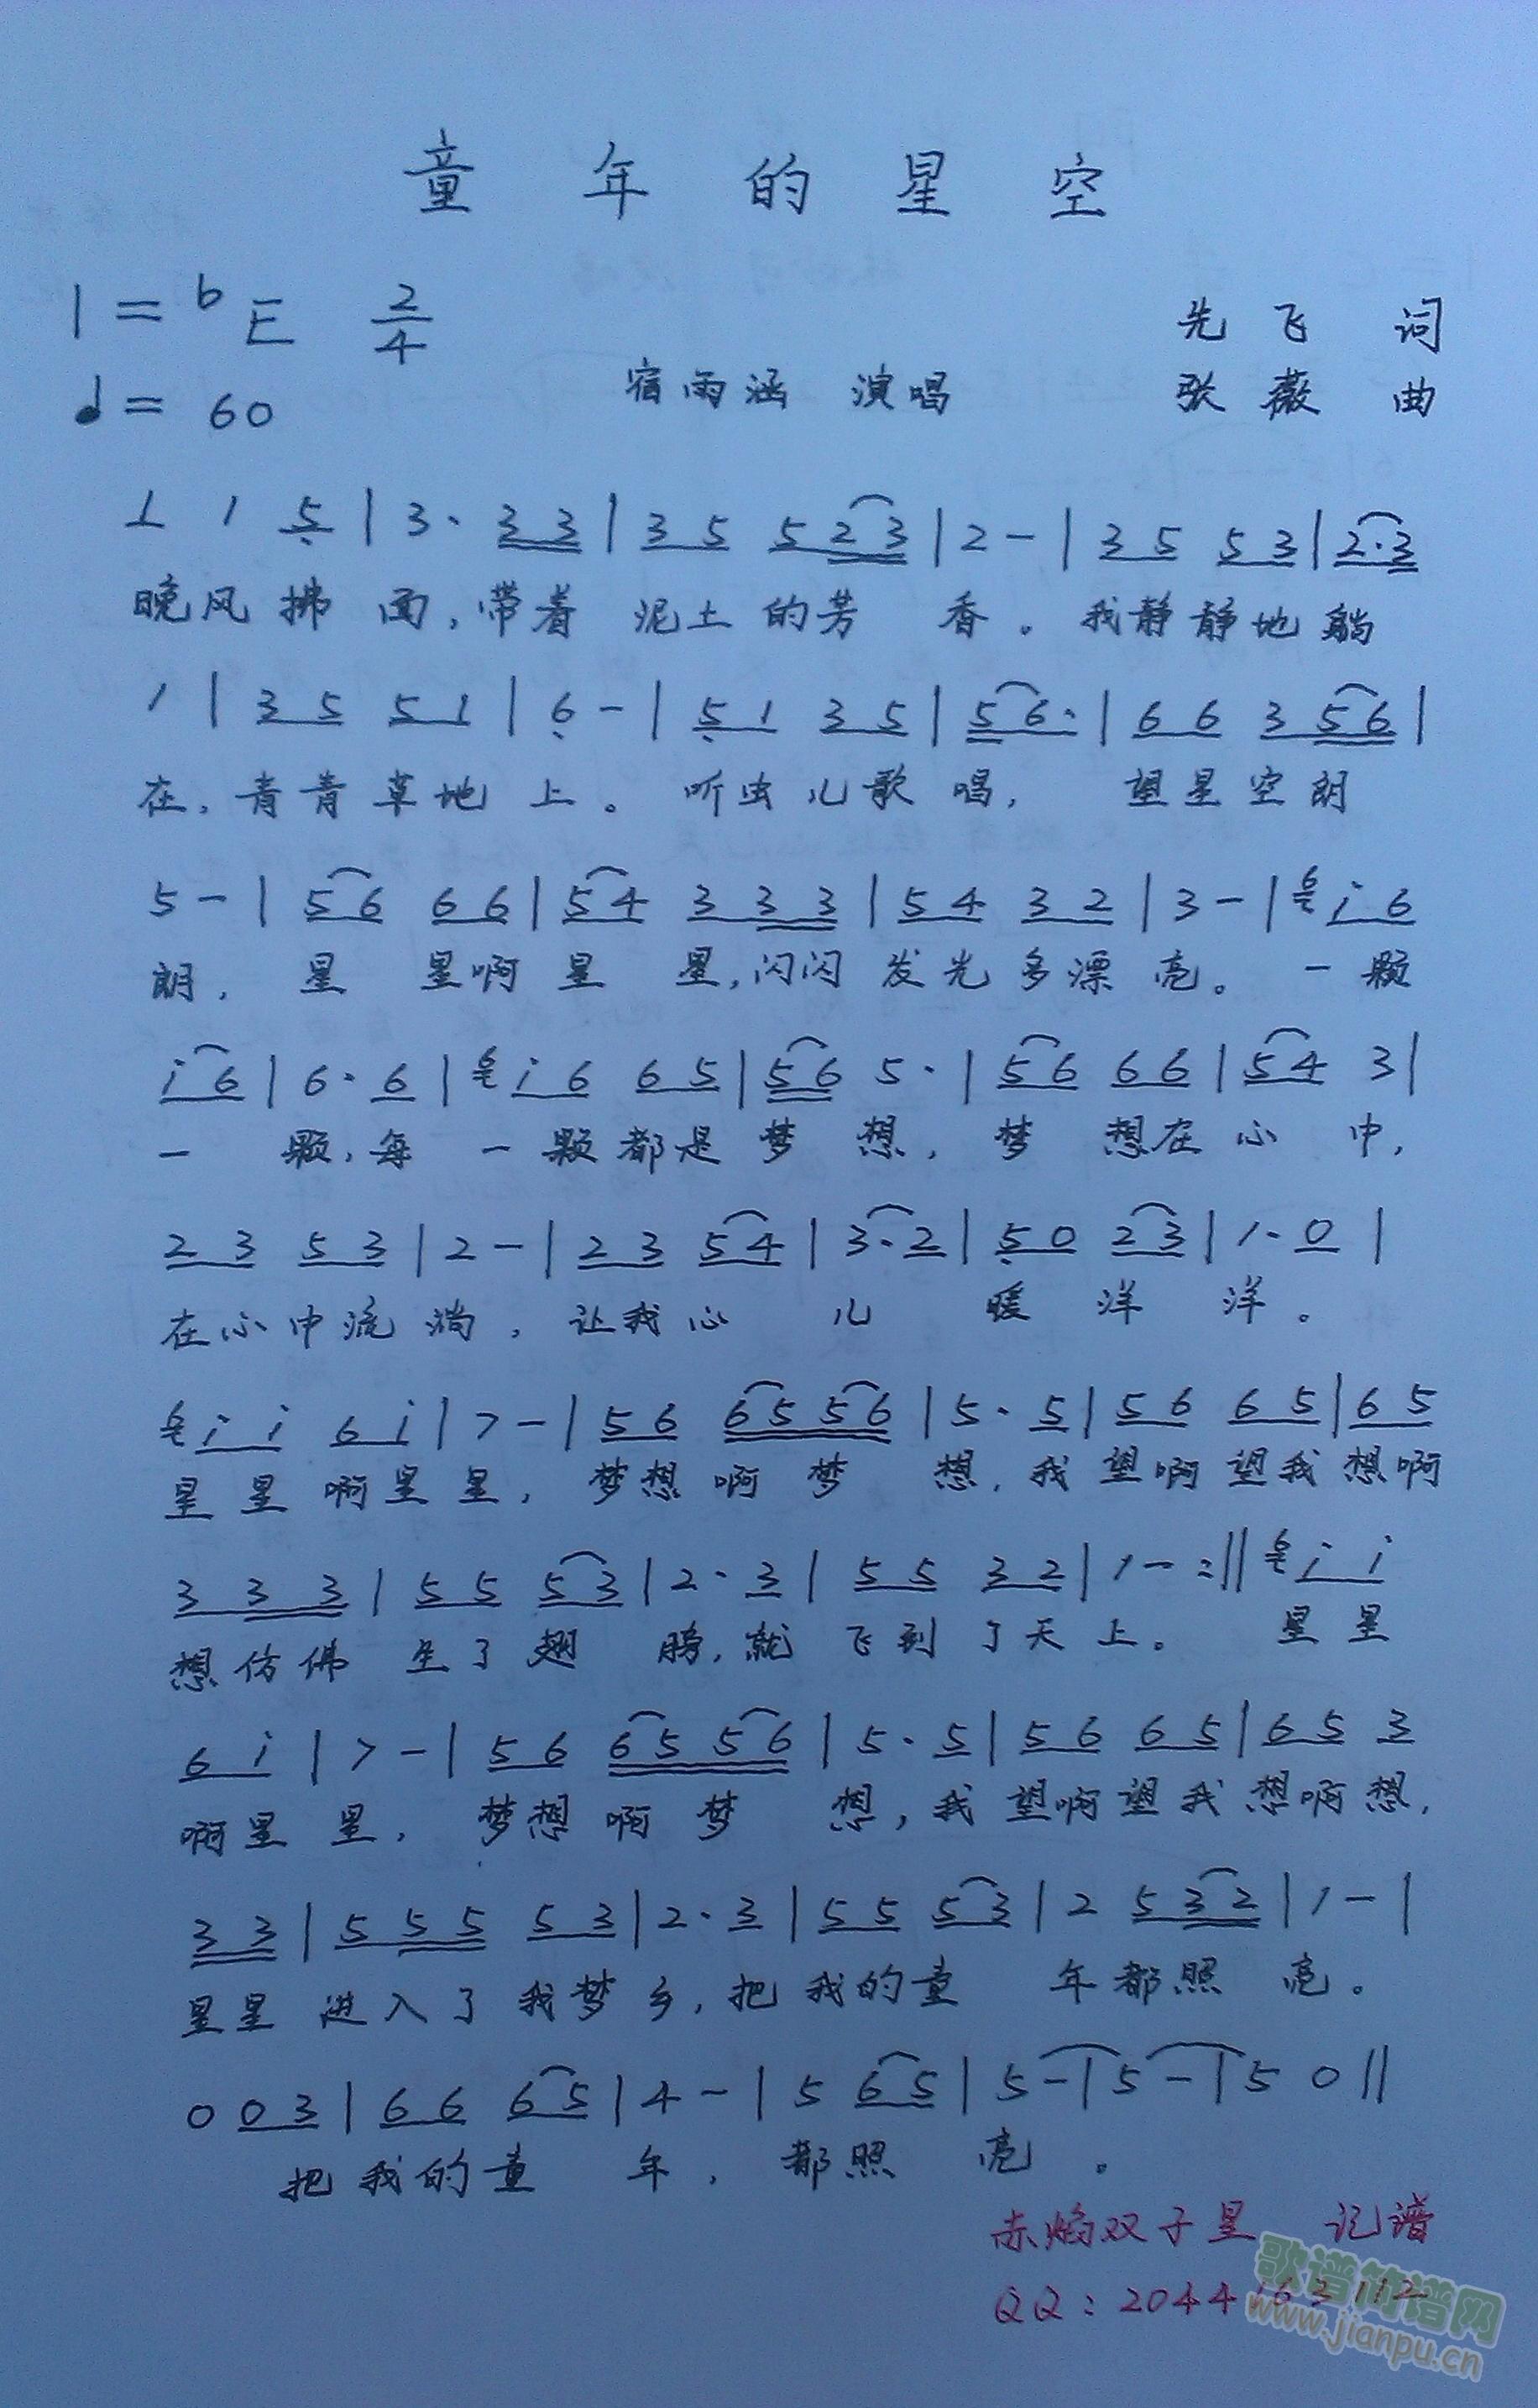 童年的星空
1=bE 2/4
先飞 词
♩= 60
宿雨涵 演唱
张薇 曲
1 1 5 | 3· 3 3 | 3 5 5 2 3 | 2 - | 3 5 5 3 | 2·3
晚风拂面,带着泥土的芳香。我静静地躺
1 | 3 5 5 1 | 6 - | 5 1 3 5 | 5 6· | 6 6 3 5 6 |
在,青青草地上。听虫儿歌唱,望星空朗
5 - | 5 6 6 6 | 5 4 3 3 3 | 5 4 3 2 | 3 - | 6 i 6
朗,星星啊星星,闪闪发光多漂亮。一颗
i 6 | 6· 6 | 6 i 6 6 5 | 5 6 5· | 5 6 6 6 | 5 4 3 |
一颗,每一颗都是梦想,梦想在心中,
2 3 5 3 | 2 - | 2 3 5 4 | 3·2 | 5 0 2 3 | 1· 0 |
在心中流淌,让我心儿暖洋洋。
6 i i 6 i | 7 - | 5 6 6 5 5 6 | 5· 5 | 5 6 6 5 | 6 5
星星啊星星,梦想啊梦想,我望啊望我想啊
3 3 3 | 5 5 5 3 | 2· 3 | 5 5 3 2 | 1 - :‖ 6 i i
想仿佛生了翅膀,就飞到了天上。星星
6 i | 7 - | 5 6 6 5 5 6 | 5· 5 | 5 6 6 5 | 6 5 3
啊星星,梦想啊梦想,我望啊望我想啊想,
3 3 | 5 5 5 5 3 | 2· 3 | 5 5 5 3 | 2 5 3 2 | 1 - |
星星进入了我梦乡,把我的童年都照亮。
0 0 3 | 6 6 6 5 | 4 - | 5 6 5 | 5 - | 5 - | 5 0 ‖
把我的童年,都照亮。
赤焰双子星 记谱
QQ:2044163112
歌谱简谱网
www.jianpu.cn